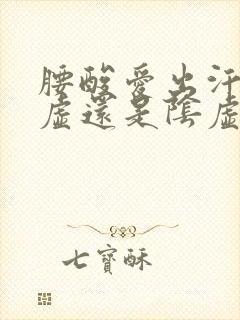 腰酸愛出汗
虛還是陰虛
七寶酥